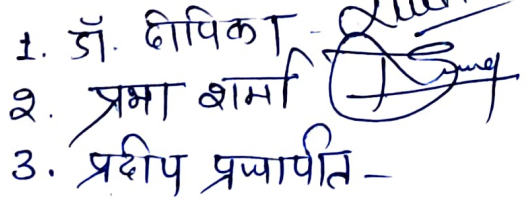 1. डॉ. दीपिका -
२. प्रभा शर्मा
3. प्रदीप प्रजापति -